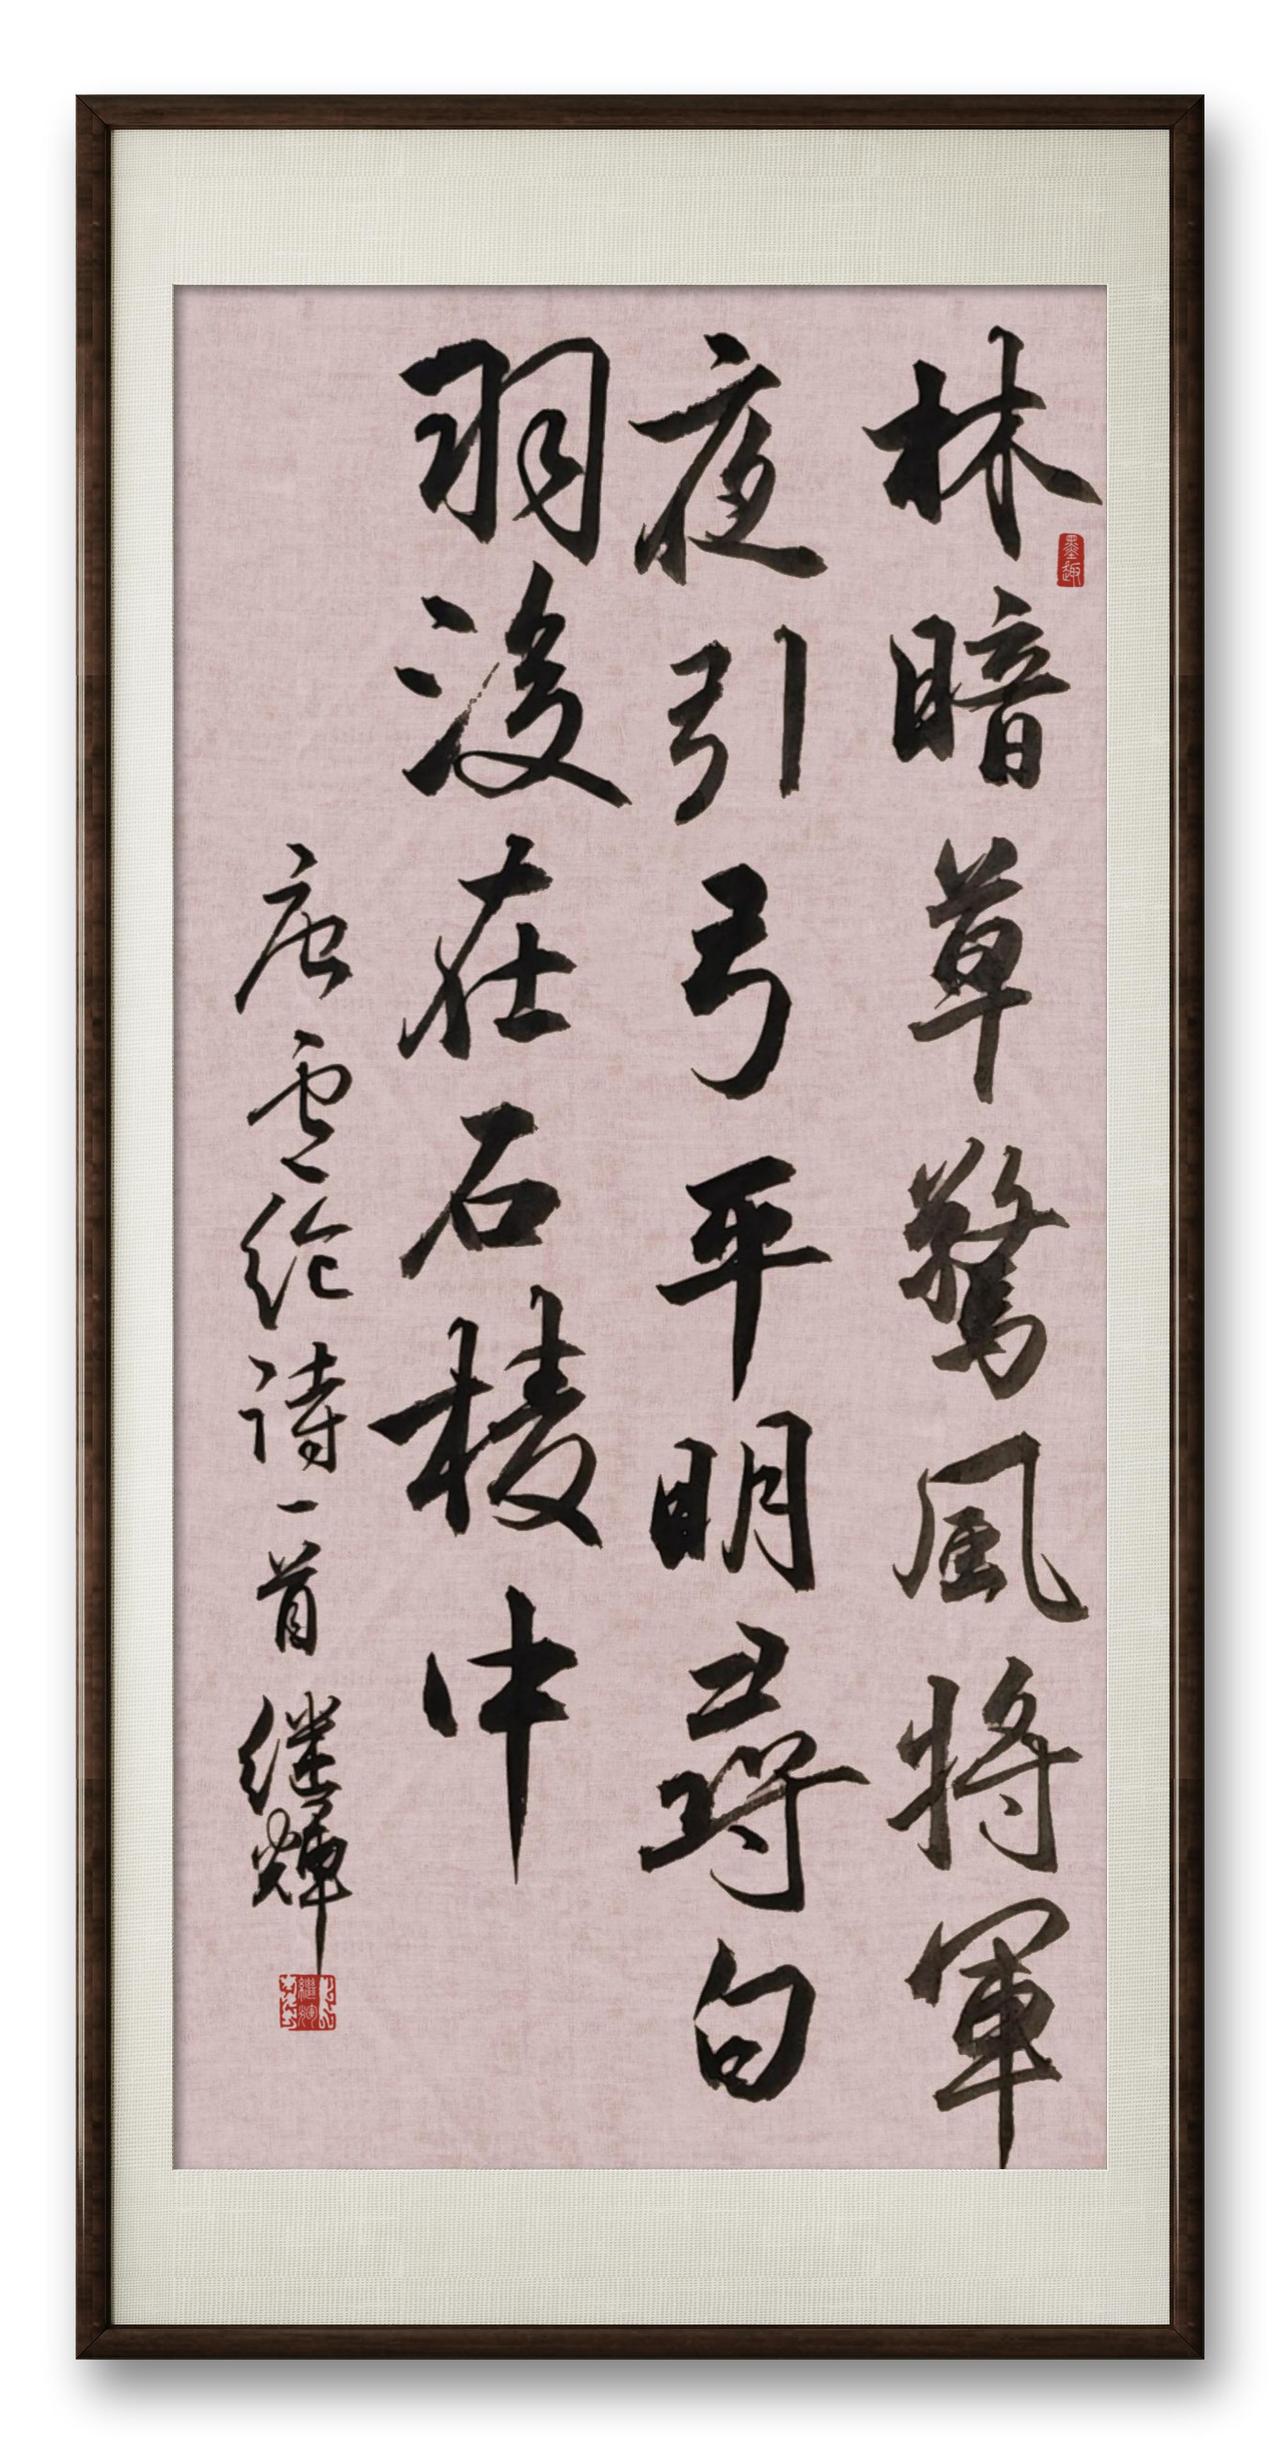 林暗草驚風將軍
墨趣
夜引弓平明尋白
羽沒在石棱中
唐盧纶诗一首 继輝